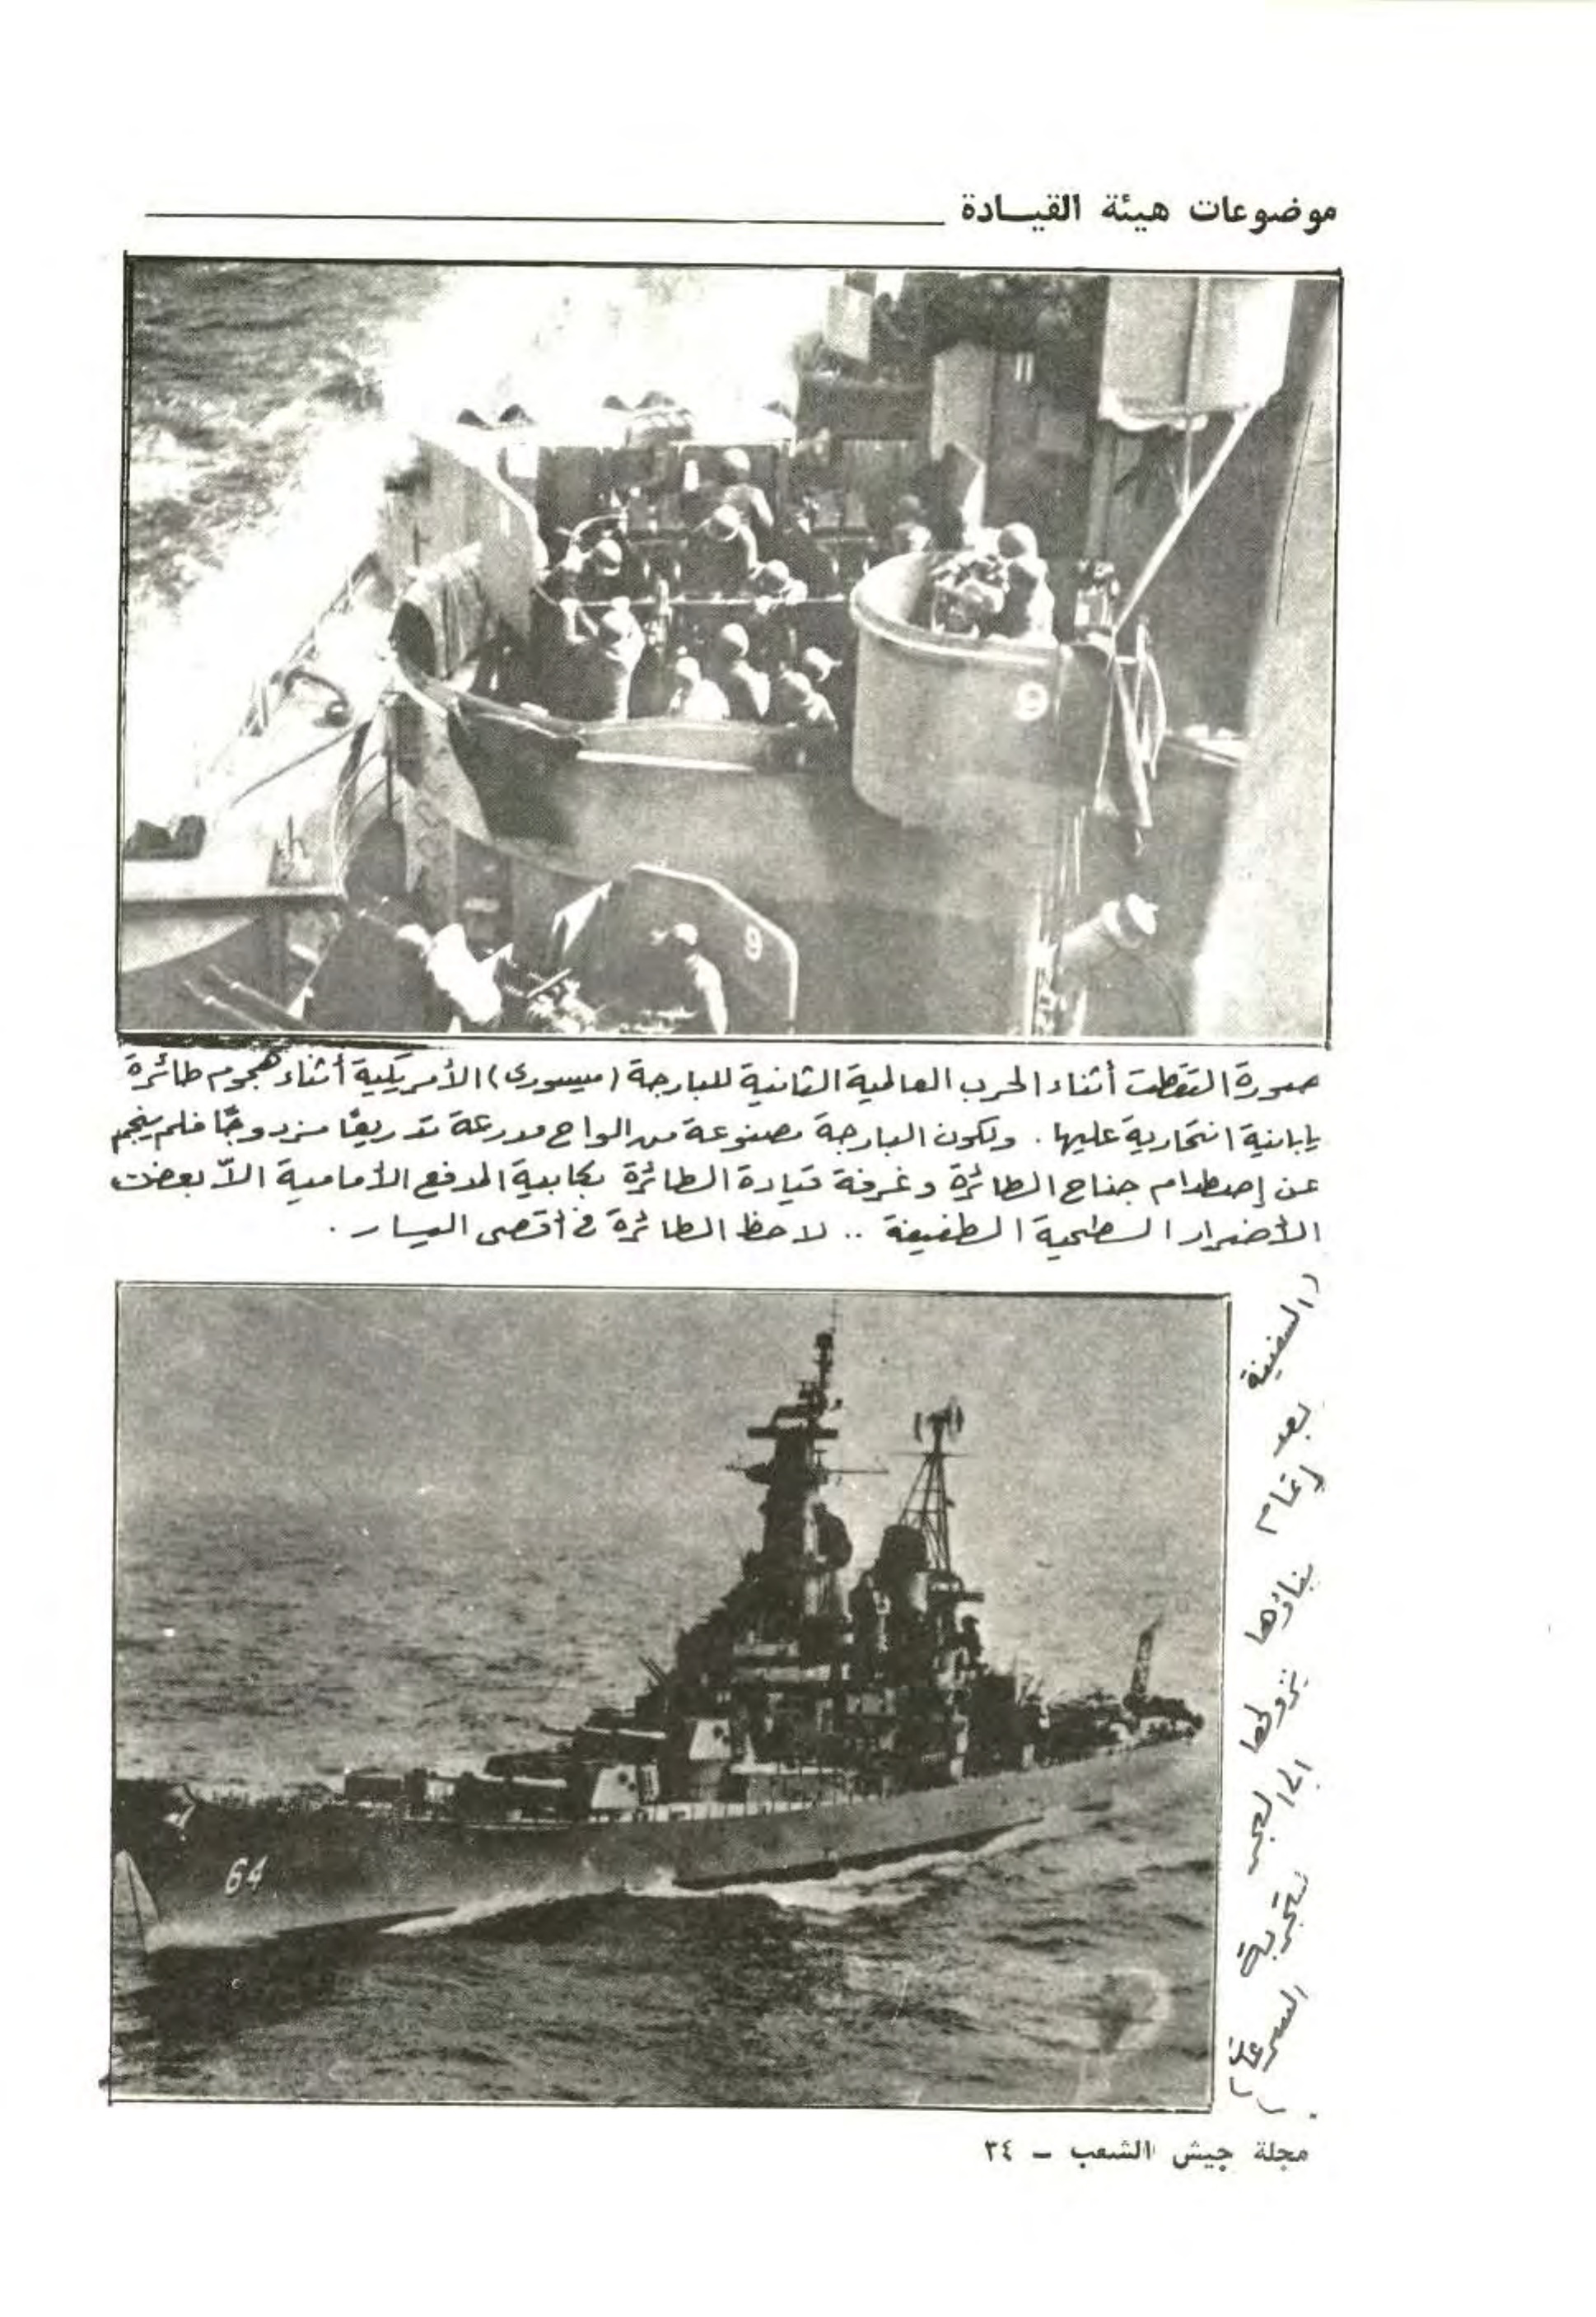 موضوعات هيئة القيــادة
11
9
9
صورة التقطت أثناء الحرب العالمية الثانية للبارجة (ميسورى) الأمريكية أثناء هجوم طائرة
يابانية انتحارية عليها. ولكون البارجة مصنوعة من الواح مدرعة تدريعًا مزدوجًا فلم ينجم
عن إصطدام جناح الطائرة وغرفة قيادة الطائرة بكابية المدفع الأمامية الاّ بعض
الأضرار السطحية الطفيفة .. لاحظ الطائرة في أقصى اليسار .
(السفينة
بعد
إتمام
بناؤها
بنزولها
إلى البحر
لتجربة
السرعة)
.
64
مجلة جيش الشعب – ٣٤